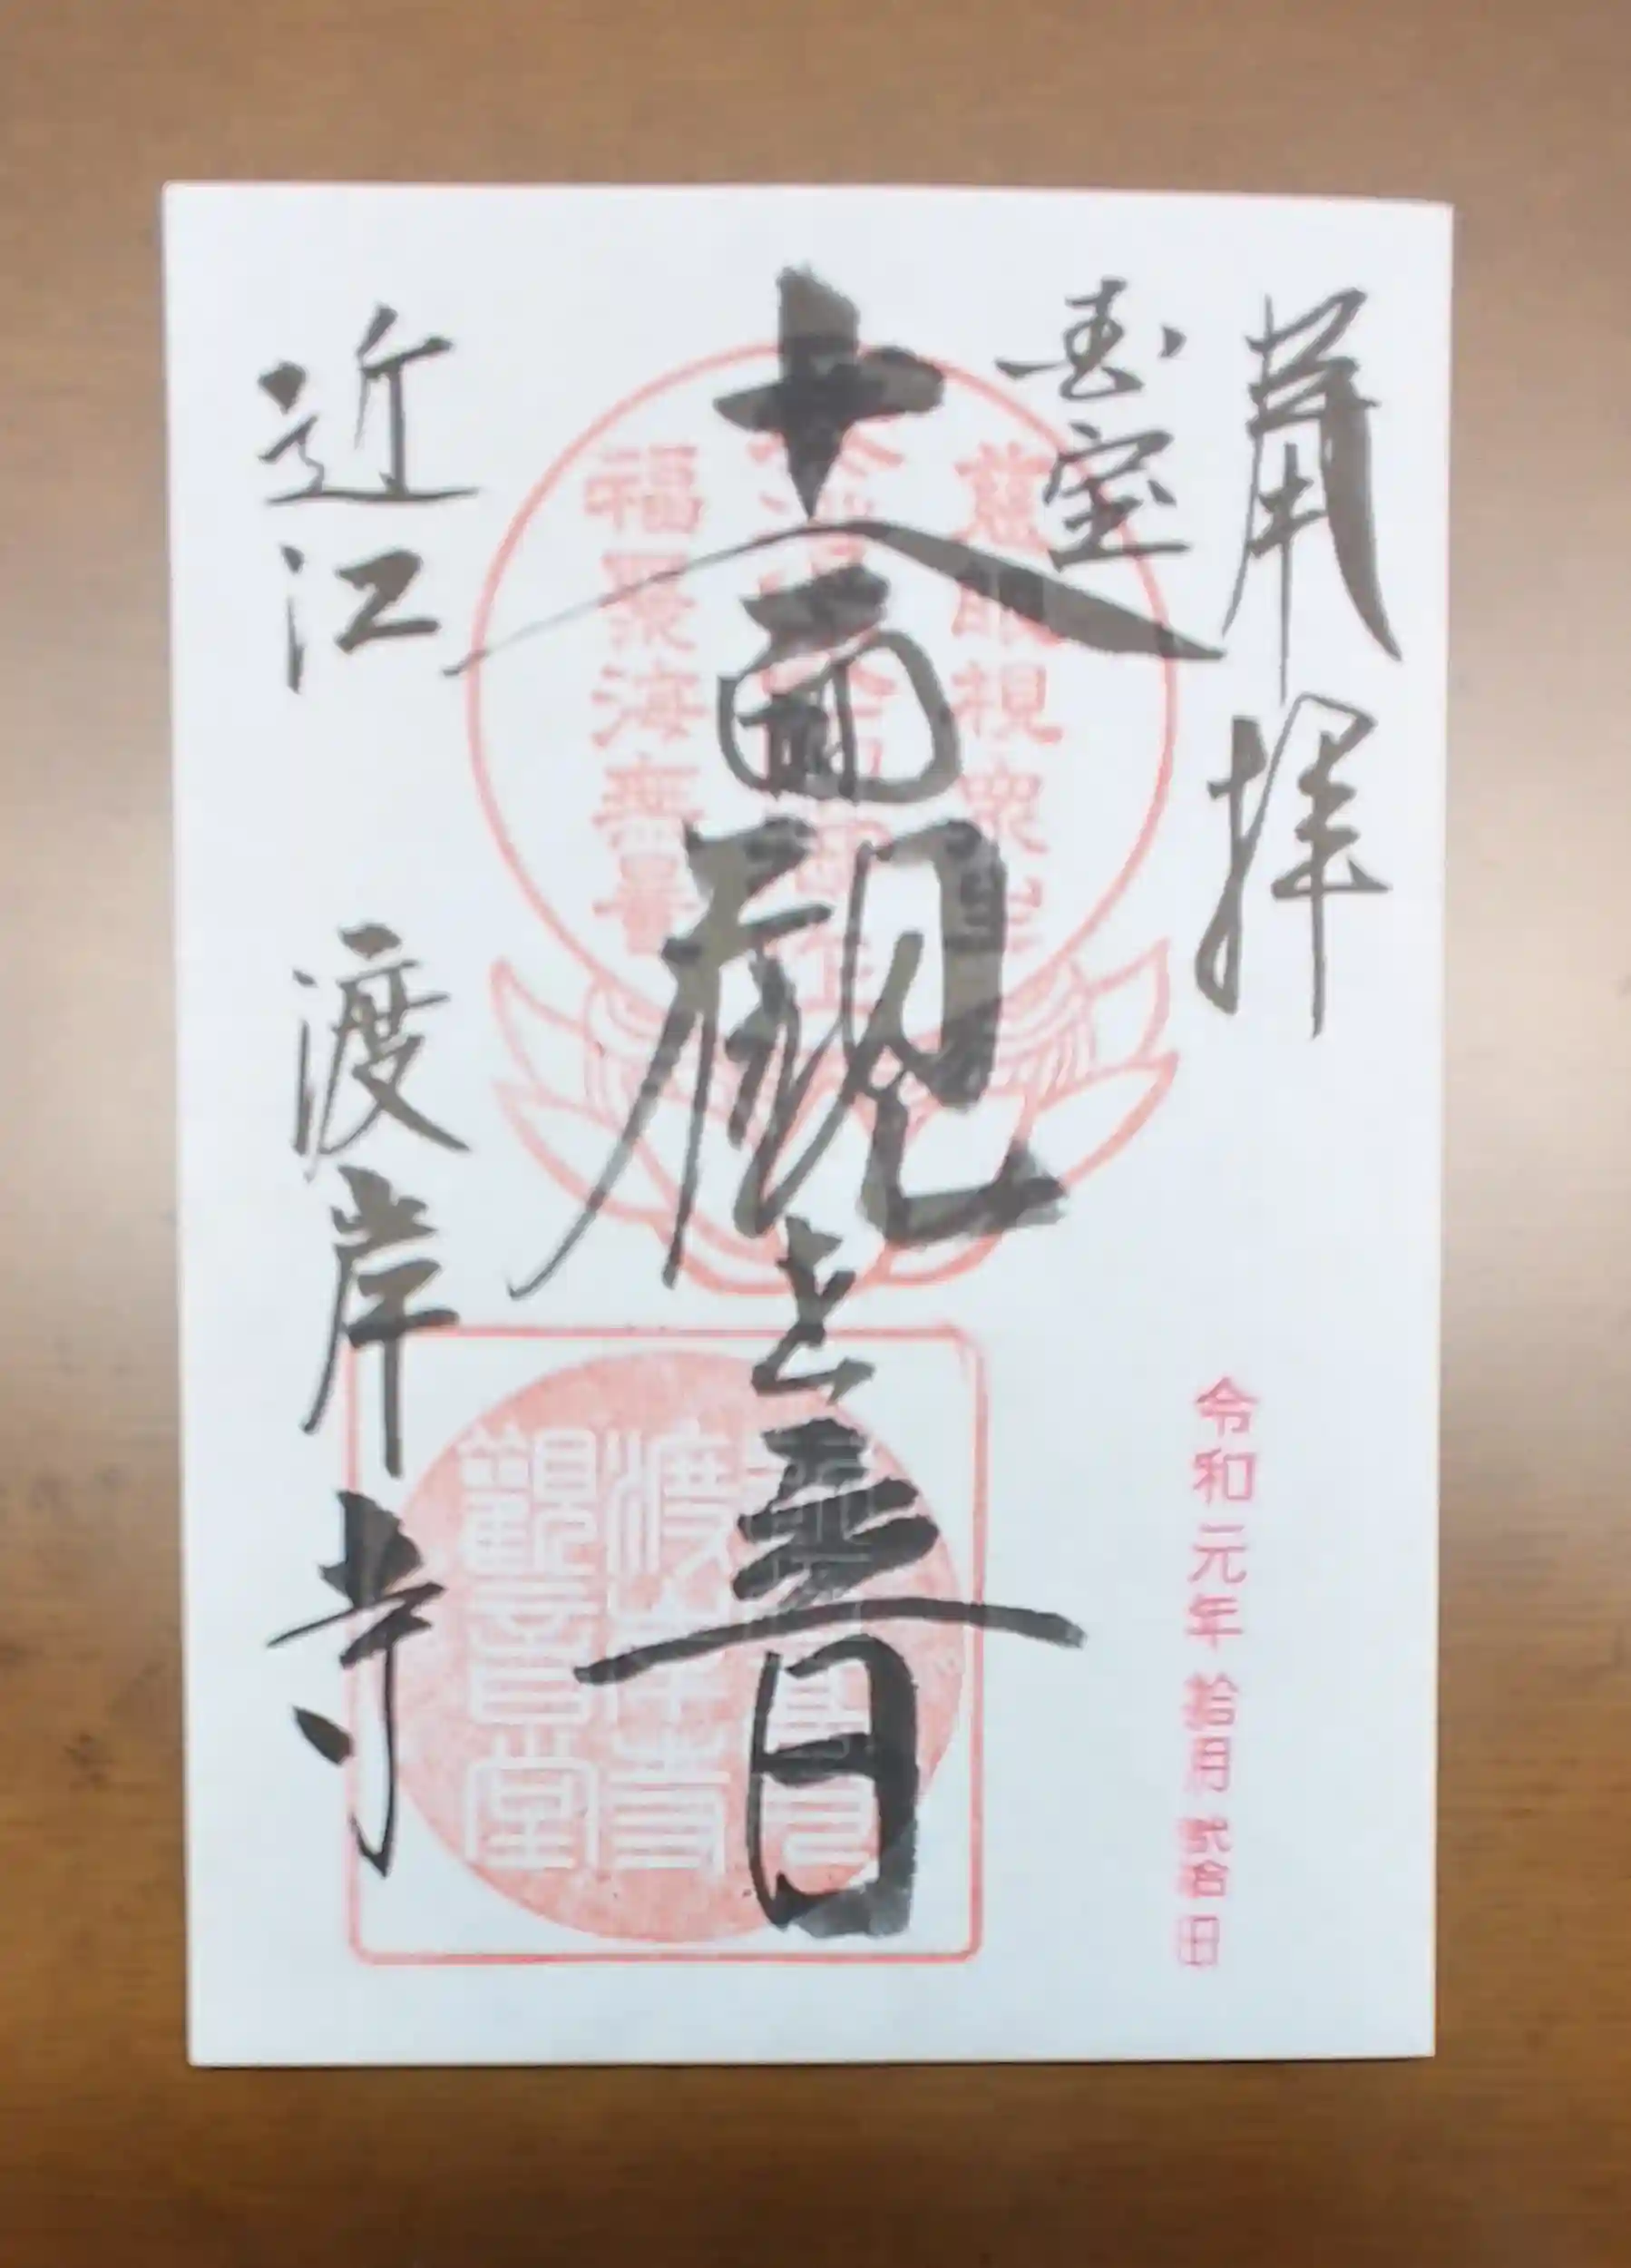 奉拝
国宝
慈眼視衆生
十一面観世音
福聚海無量
渡岸寺
觀音堂
近江 渡岸寺
令和元年拾月弐拾日